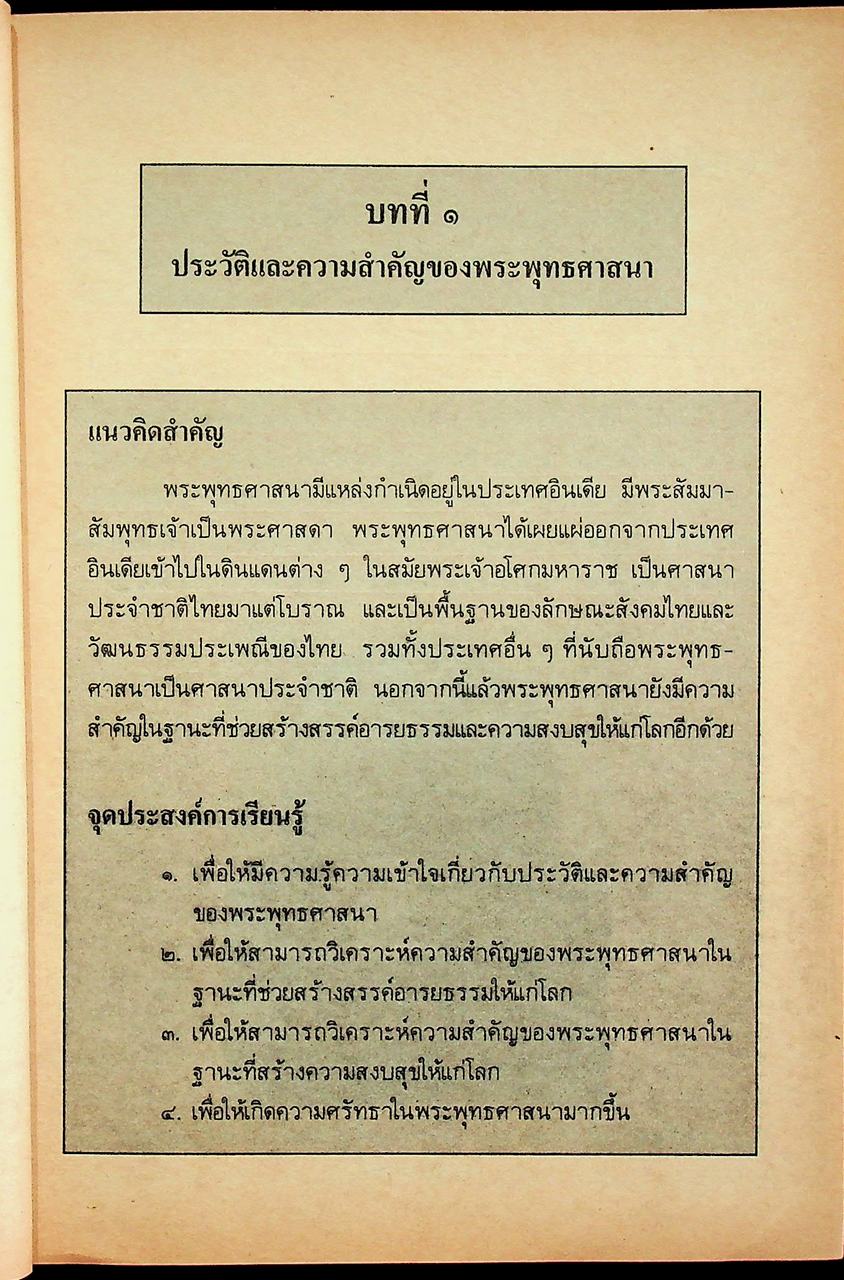 บทที่ ๑
ประวัติและความสำคัญของพระพุทธศาสนา
แนวคิดสำคัญ
พระพุทธศาสนามีแหล่งกำเนิดอยู่ในประเทศอินเดีย มีพระสัมมา-
สัมพุทธเจ้าเป็นพระศาสดา พระพุทธศาสนาได้เผยแผ่ออกจากประเทศ
อินเดียเข้าไปในดินแดนต่าง ๆ ในสมัยพระเจ้าอโศกมหาราช เป็นศาสนา
ประจำชาติไทยมาแต่โบราณ และเป็นพื้นฐานของลักษณะสังคมไทยและ
วัฒนธรรมประเพณีของไทย รวมทั้งประเทศอื่น ๆ ที่นับถือพระพุทธ-
ศาสนาเป็นศาสนาประจำชาติ นอกจากนี้แล้วพระพุทธศาสนายังมีความ
สำคัญในฐานะที่ช่วยสร้างสรรค์อารยธรรมและความสงบสุขให้แก่โลกอีกด้วย
จุดประสงค์การเรียนรู้
๑. เพื่อให้มีความรู้ความเข้าใจเกี่ยวกับประวัติและความสำคัญ
ของพระพุทธศาสนา
๒. เพื่อให้สามารถวิเคราะห์ความสำคัญของพระพุทธศาสนาใน
ฐานะที่ช่วยสร้างสรรค์อารยธรรมให้แก่โลก
๓. เพื่อให้สามารถวิเคราะห์ความสำคัญของพระพุทธศาสนาใน
ฐานะที่สร้างความสงบสุขให้แก่โลก
๔. เพื่อให้เกิดความศรัทธาในพระพุทธศาสนามากขึ้น